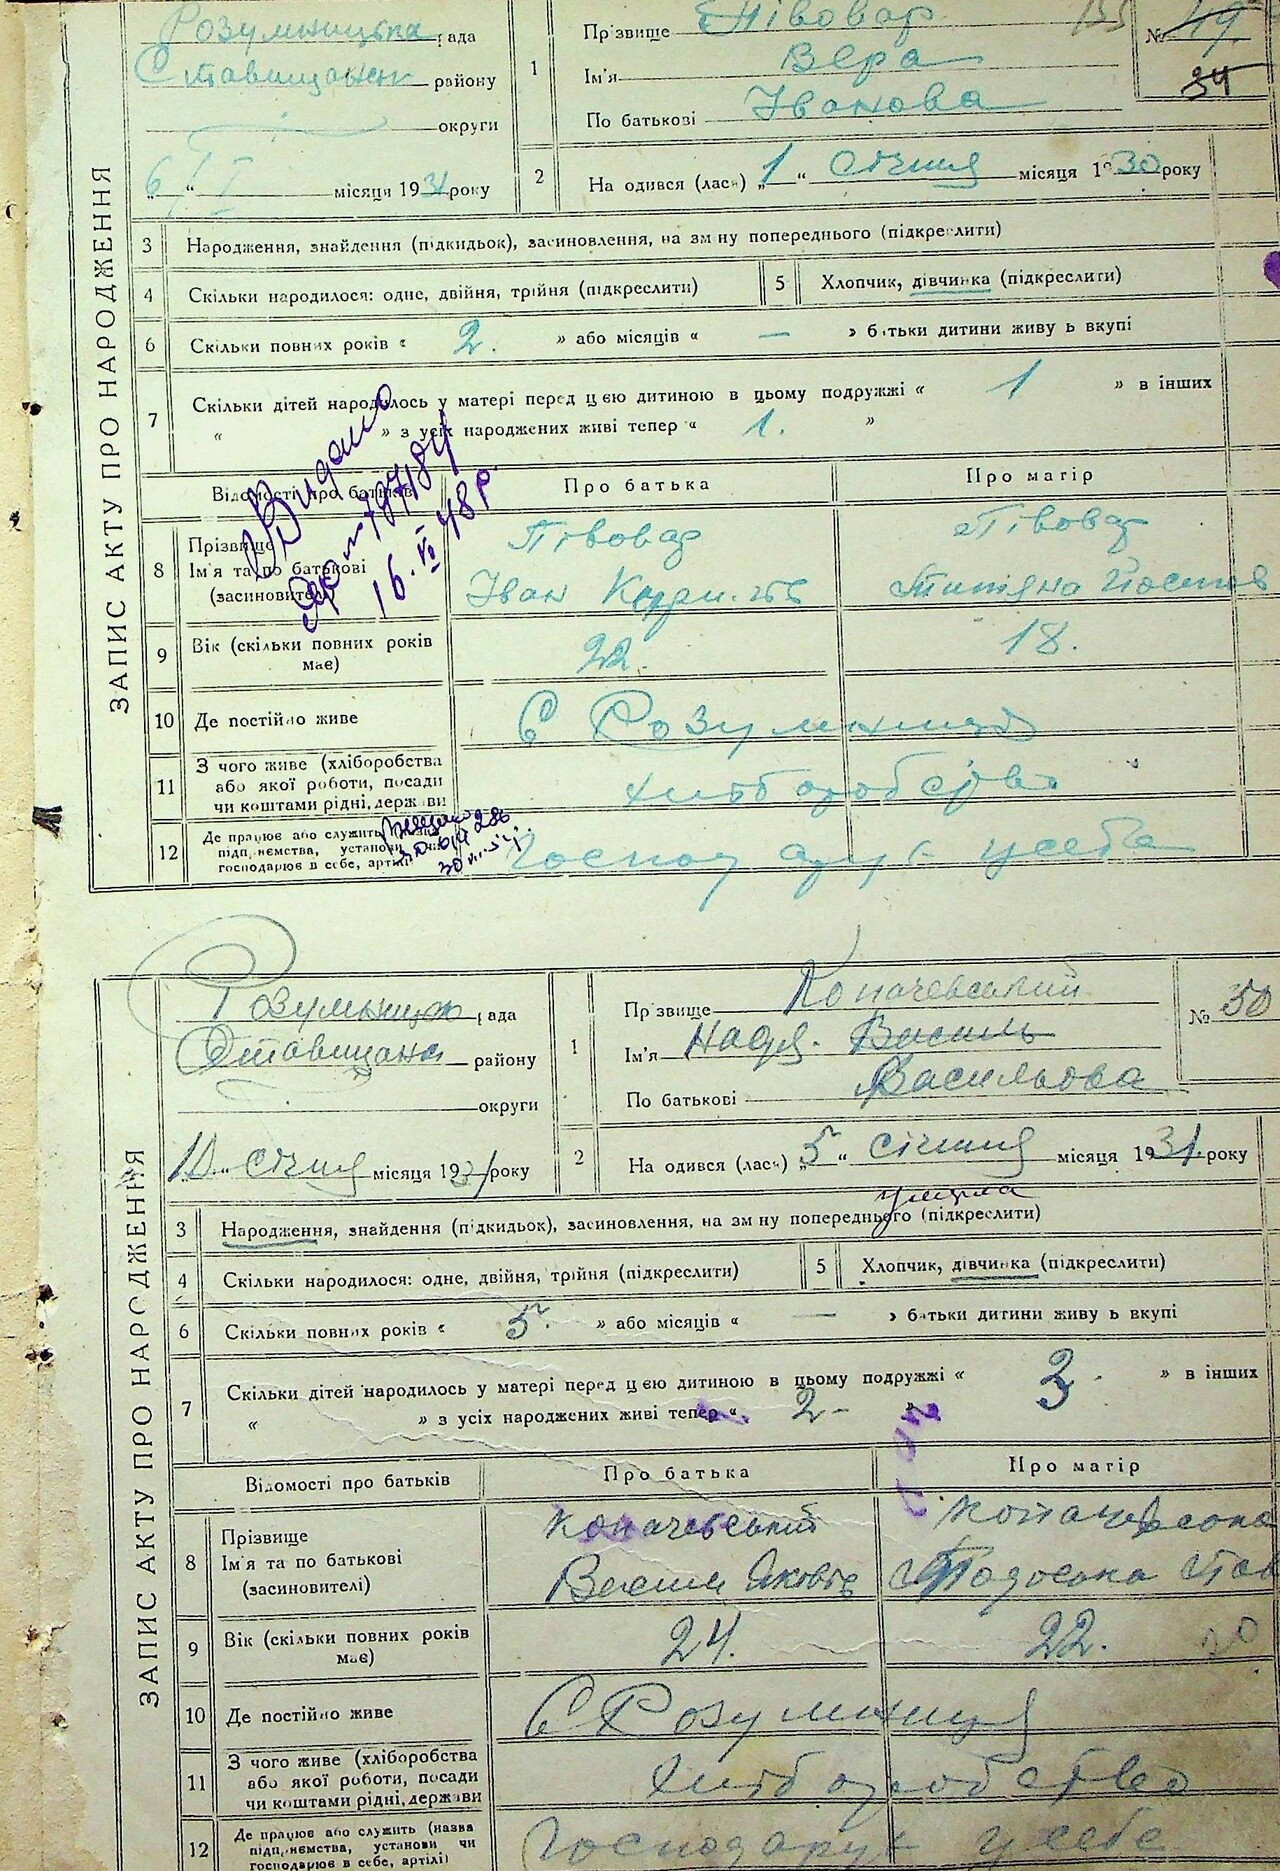 ЗАПИС АКТУ ПРО НАРОДЖЕННЯ
Розумницька рада
Ставищанськ району
округи
6 " І місяця 1931 року
1 Прізвище Півовар
Ім'я Вера
По батькові Іванова
№ 49
34
155
2 На одився (лась) „1“ Січния місяця 1930 року
3 Народження, знайдення (підкидьок), засиновлення, на зм ну попереднього (підкреслити)
4 Скільки народилося: одне, двійня, трійня (підкреслити)
5 Хлопчик, дівчинка (підкреслити)
6 Скільки повних років « 2. » або місяців « — » батьки дитини живу ь вкупі
7 Скільки дітей народилось у матері перед цією дитиною в цьому подружжі « 1 » в інших
« » з усіх народжених живі тепер « 1. »
Видано
16.VI 48р
Відомості про батьків
Про батька
Про матір
8 Прізвище
Ім'я та по батькові
(засиновителі)
Півовар
Іван
Півовар
Титяна Йосипов
9 Вік (скільки повних років має)
22.
18.
10 Де постійно живе
С Розумниця
11 З чого живе (хліборобства
або якої роботи, посади
чи коштами рідні, держави
хліборобство
12 Де працює або служить (назва
підприємства, установи чи
господарює в себе, артілі)
Господарує у себе
ЗАПИС АКТУ ПРО НАРОДЖЕННЯ
Розумницьк рада
Ставищанс району
округи
10 " січния місяця 1931 року
1 Прізвище Копачевський
Ім'я Надя. Василь
По батькові Васильова
№ 50
2 На одився (лась) „5“ січния місяця 1931. року
умерла
3 Народження, знайдення (підкидьок), засиновлення, на зм ну попереднього (підкреслити)
4 Скільки народилося: одне, двійня, трійня (підкреслити)
5 Хлопчик, дівчинка (підкреслити)
6 Скільки повних років « 5. » або місяців « — » батьки дитини живу ь вкупі
7 Скільки дітей народилось у матері перед цією дитиною в цьому подружжі « 2. » в інших
« » з усіх народжених живі тепер « 2- »
Відомості про батьків
Про батька
Про матір
8 Прізвище
Ім'я та по батькові
(засиновителі)
Копачевський
Васил Яковів
Копачевсока
Тодосока
9 Вік (скільки повних років має)
24.
22.
10 Де постійно живе
С Розумниця
11 З чого живе (хліборобства
або якої роботи, посади
чи коштами рідні, держави
хліборобство
12 Де працює або служить (назва
підприємства, установи чи
господарює в себе, артілі)
Господарує у себе